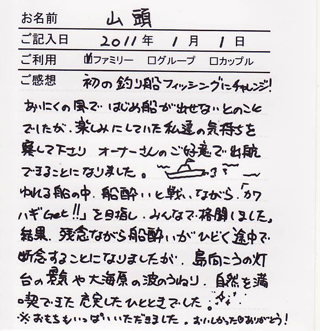 お名前 山頭
ご記入日 2011年 1月 1日
ご利用 ☑ファミリー □グループ □カップル
ご感想 初の釣り船フィッシングにチャレンジ!
あいにくの風ではじめ船が出せないとのこと
でしたが、楽しみにしていた私達の気持ちを
察して下さり オーナーさんのご好意で出航
できることになりました。
ゆれる船の中、船酔いと戦いながら「カワ
ハギGet!!」を目指し、みんなで格闘しました。
結果、残念ながら船酔いがひどく途中で
断念することになりましたが、島向こうの灯
台の景気や大海原の波のうねり、自然を満
喫できた充実したひとときでした。
※おもちもいっぱいいただきました。おいしかったありがとう!